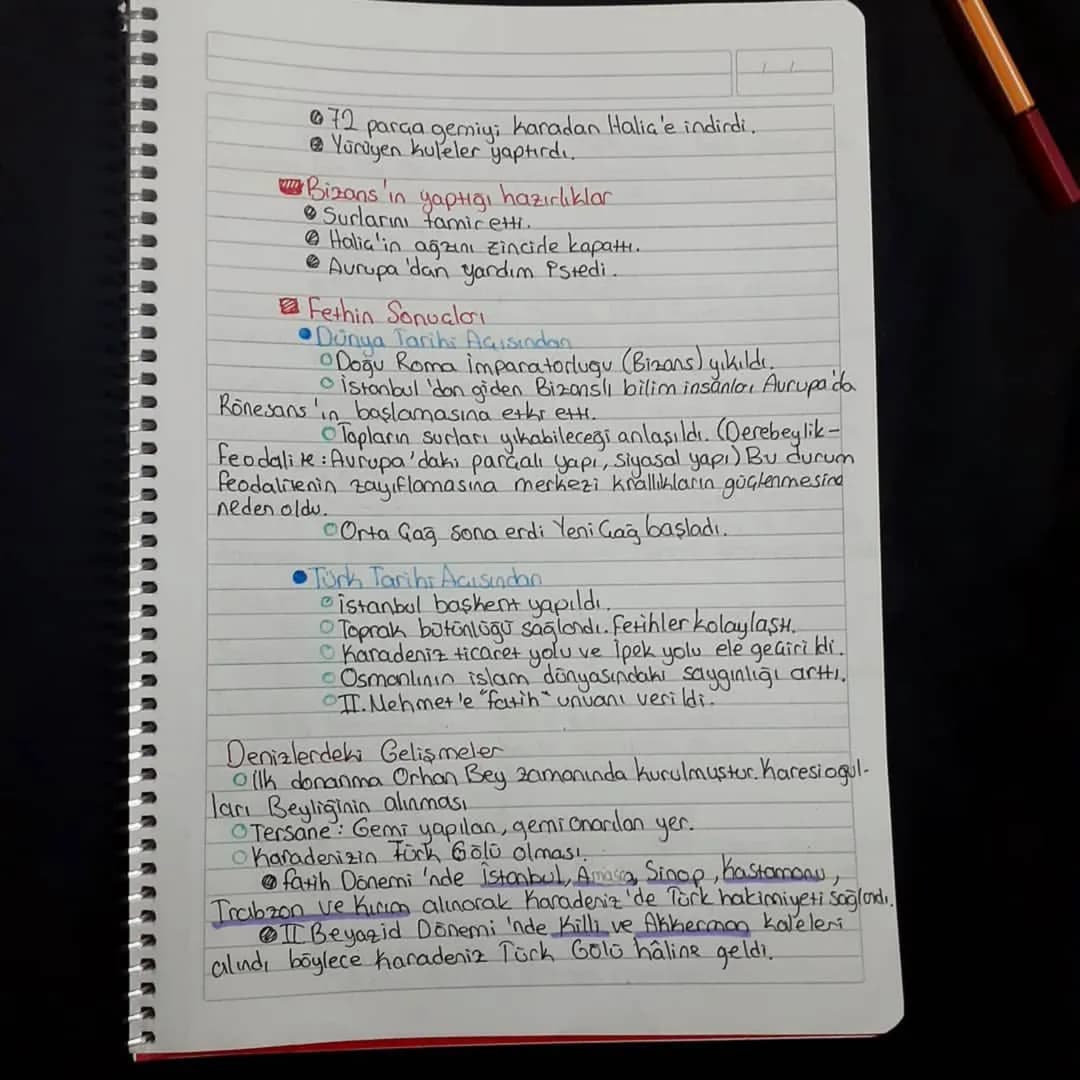 72 parça gemiyi karadan Haliç'e indirdi.
Yürüyen kuleler yaptırdı.
Bizans'ın yaptığı hazırlıklar
Surlarını tamir etti.
Haliç'in ağzını zincirle kapattı.
Avrupa'dan yardım istedi.
Fethin Sonuçları
Dünya Tarihi Açısından
Doğu Roma İmparatorluğu (Bizans) yıkıldı.
İstanbul'dan giden Bizanslı bilim insanları Avrupa'da
Rönesans'ın başlamasına etki etti.
Topların surları yıkabileceği anlaşıldı. (Derebeylik-
feodalite: Avrupa'daki parçalı yapı, siyasal yapı) Bu durum
feodalitenin zayıflamasına merkezi krallıkların güçlenmesine
neden oldu.
Orta Çağ sona erdi Yeni Çağ başladı.
Türk Tarihi Açısından
İstanbul başkent yapıldı.
Toprak bütünlüğü sağlandı. Fetihler kolaylaştı.
Karadeniz ticaret yolu ve İpek yolu ele geçirildi.
Osmanlının islam dünyasındaki saygınlığı arttı.
II. Mehmet'e "fatih" unvanı verildi.
Denizlerdeki Gelişmeler
İlk donanma Orhan Bey zamanında kurulmuştur. Karesioğul-
ları Beyliğinin alınması
Tersane: Gemi yapılan, gemi onarılan yer.
Karadenizin Türk Gölü olması.
fatih Dönemi'nde İstanbul, Amasra, Sinop, Kastamonu,
Trabzon ve Kırım alınarak Karadeniz'de Türk hakimiyeti sağlandı.
II Beyazid Dönemi'nde Killi ve Akkerman kaleleri
alındı böylece Karadeniz Türk Gölü hâline geldi.